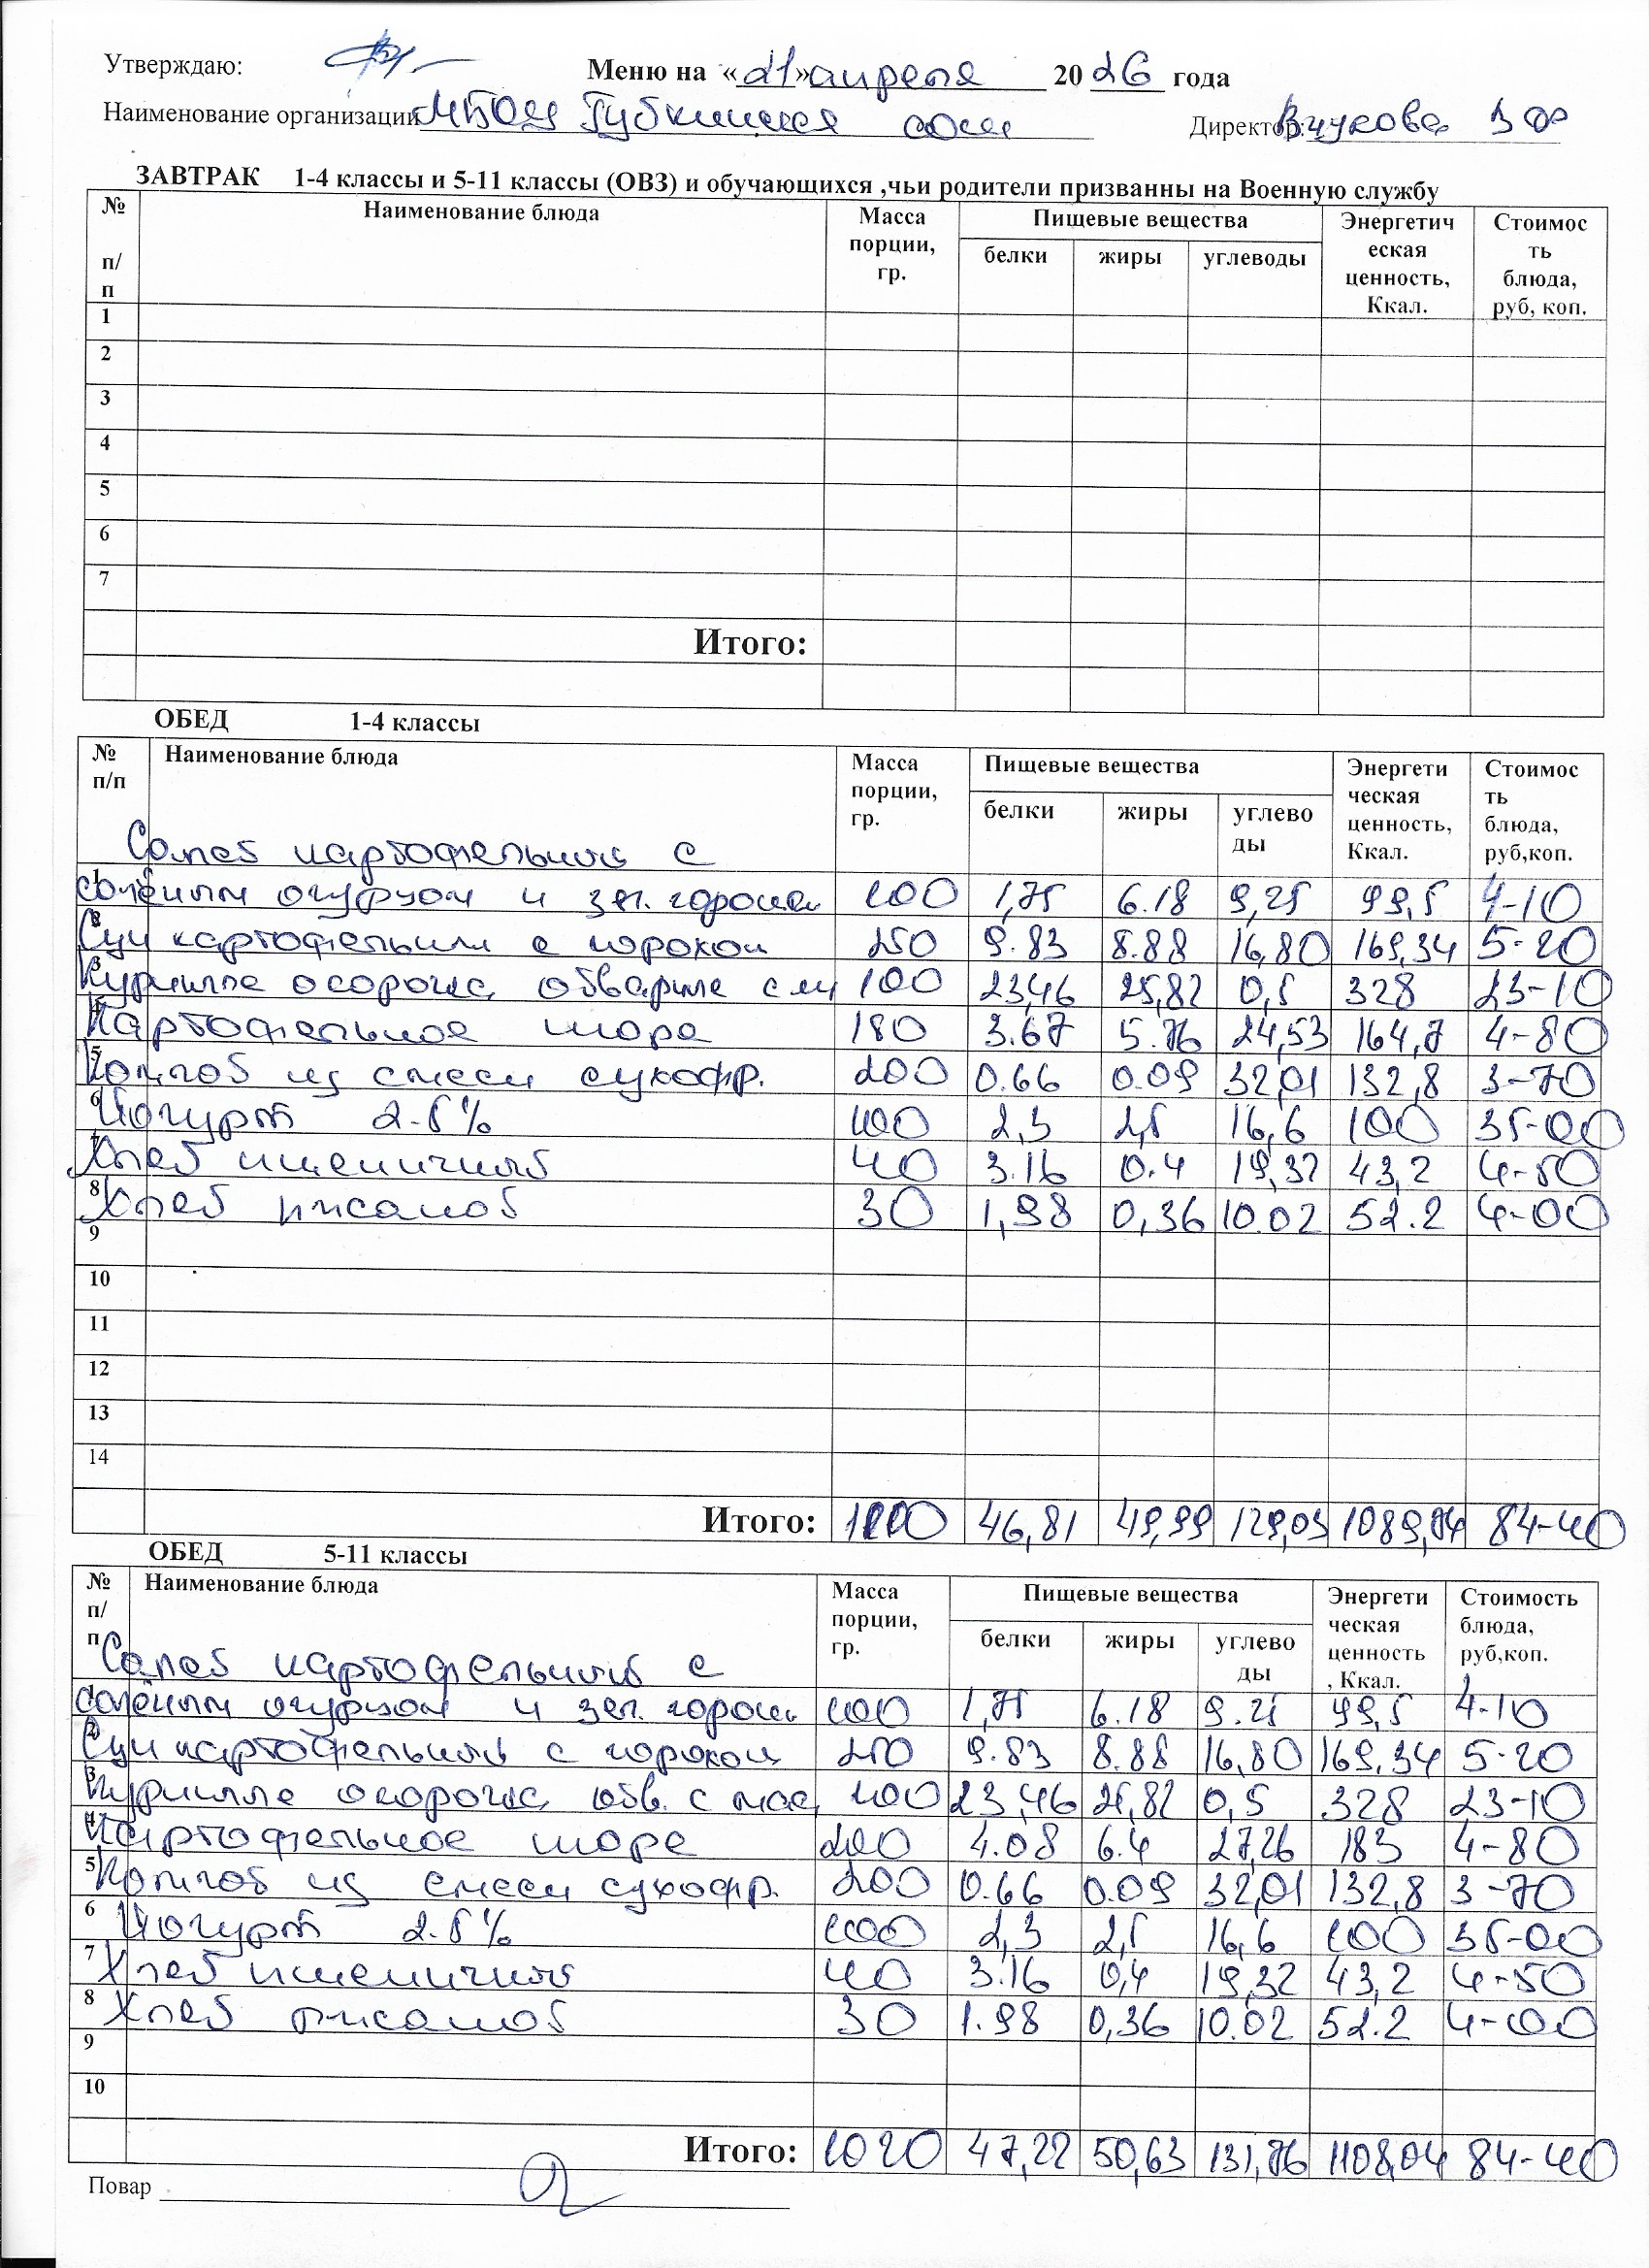 Утверждаю:
Меню на «21» апреля 2026 года
Наименование организации МБОУ Губкинская сош Директор: Внукова
ЗАВТРАК 1-4 классы и 5-11 классы (ОВЗ) и обучающихся ,чьи родители призванны на Военную службу
№ п/п Наименование блюда Масса порции, гр. Пищевые вещества Энергетическая ценность, Ккал. Стоимость блюда, руб, коп.
белки жиры углеводы
1
2
3
4
5
6
7
Итого:
ОБЕД 1-4 классы
№ п/п Наименование блюда Масса порции, гр. Пищевые вещества Энергетическая ценность, Ккал. Стоимость блюда, руб,коп.
белки жиры углеводы
Салат картофельный с
1 солёным огурцом и зел. горошк 100 1,75 6.18 9,25 99,5 4-10
2 Суп картофельный с горохом 250 9.83 8.88 16,80 169,34 5-20
3 Куриные окорочка отварные с м 100 23,46 25,82 0,5 328 23-10
4 Картофельное пюре 180 3.67 5.76 24,53 164,7 4-80
5 Компот из смеси сухофр. 200 0.66 0.09 32,01 132,8 3-70
6 Йогурт 2.5% 100 2,3 2,5 16,6 100 35-00
7 Хлеб пшеничный 40 3.16 0.4 19,32 43,2 4-50
8 Хлеб ржаной 30 1,98 0,36 10.02 52.2 4-00
9
10
11
12
13
14
Итого: 1000 46,81 49,99 129,03 1089,74 84-40
ОБЕД 5-11 классы
№ п/п Наименование блюда Масса порции, гр. Пищевые вещества Энергетическая ценность, Ккал. Стоимость блюда, руб,коп.
белки жиры углеводы
Салат картофельный с
1 солёным огурцом и зел. горошк 100 1,75 6.18 9.25 99,5 4-10
2 Суп картофельный с горохом 250 9.83 8.88 16,80 169,34 5-20
3 Куриные окорочка отв. с мас 100 23,46 25,82 0,5 328 23-10
4 Картофельное пюре 200 4.08 6.4 27,26 183 4-80
5 Компот из смеси сухофр. 200 0.66 0.09 32,01 132,8 3-70
6 Йогурт 2.5% 100 2,3 2,5 16,6 100 35-00
7 Хлеб пшеничный 40 3.16 0,4 19,32 43,2 4-50
8 Хлеб ржаной 30 1.98 0,36 10.02 52.2 4-00
9
10
Итого: 1020 47,22 50,63 131,76 1108,04 84-40
Повар